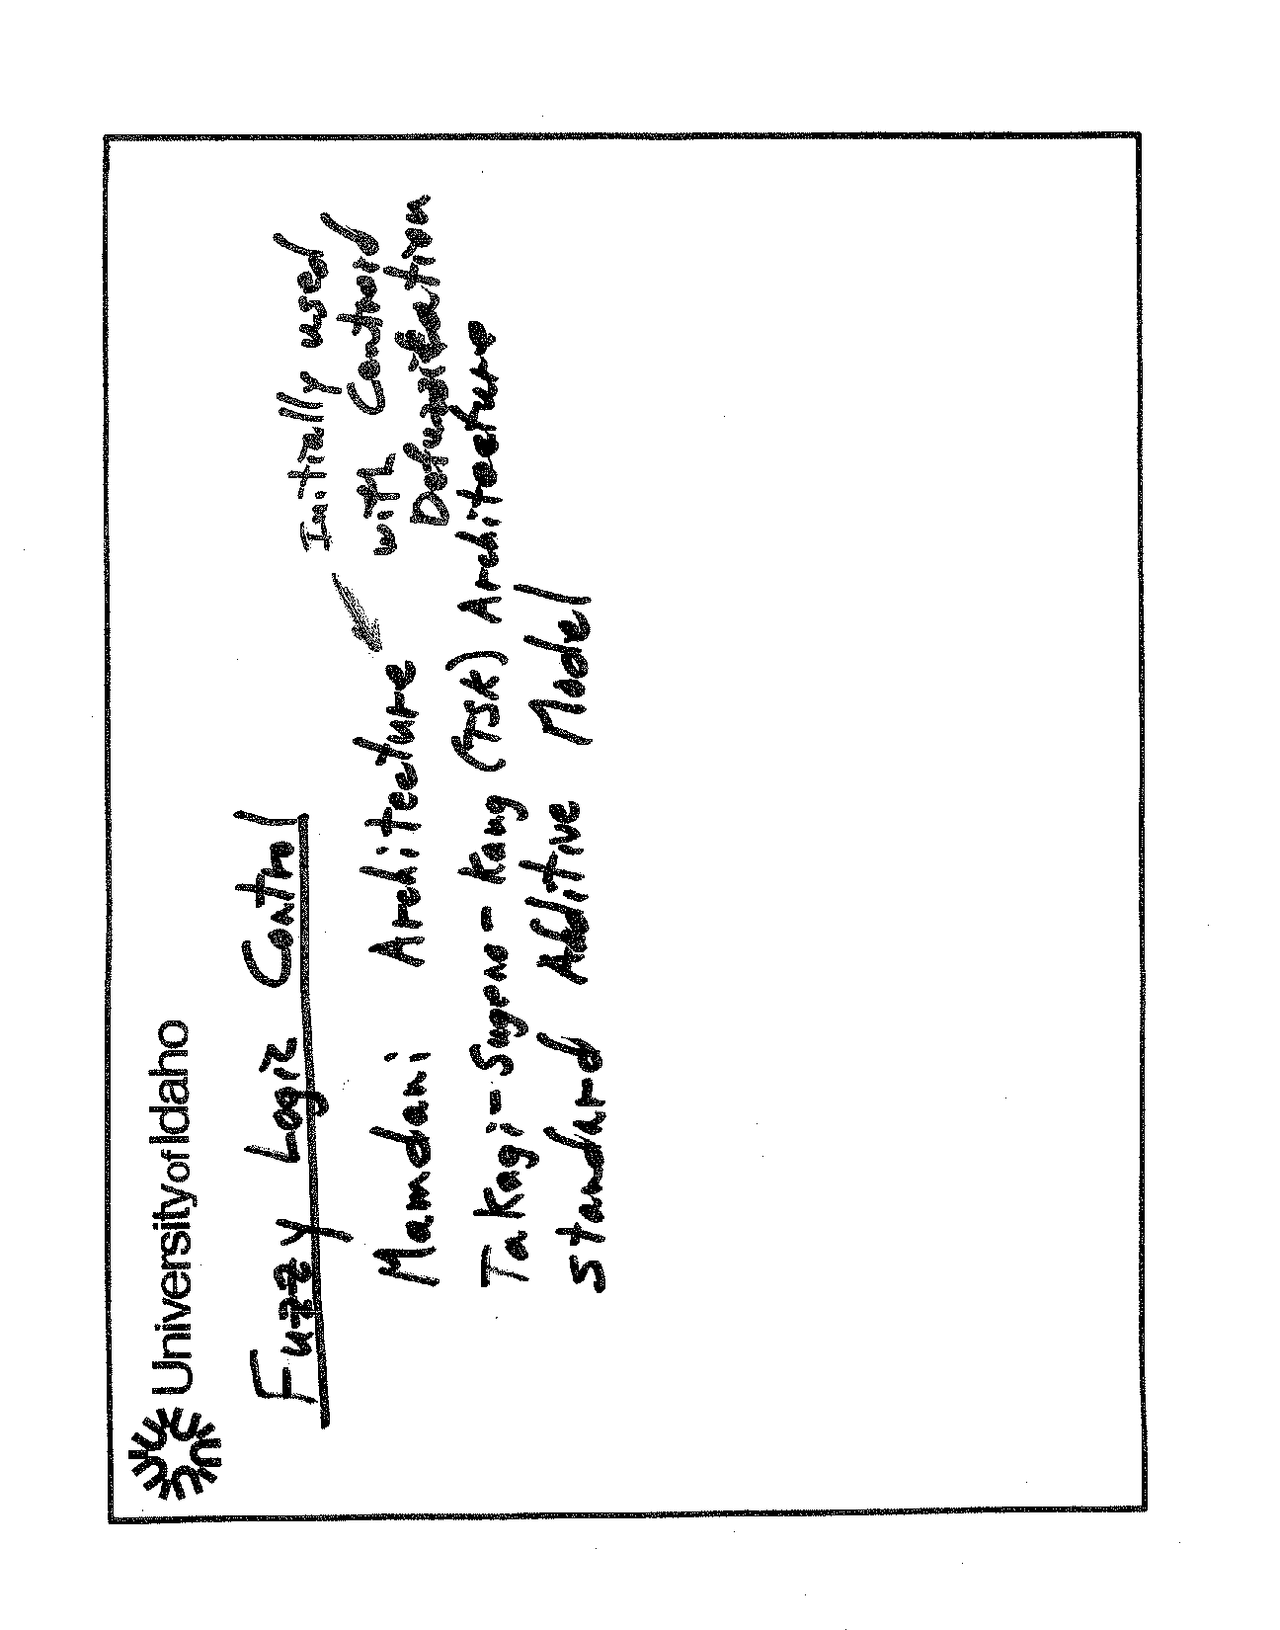 University of Idaho
Fuzzy Logic Control
Initially used
with Centroid
Defuzzification
Mamdani Architecture
Takagi-Sugeno-Kang (TSK) Architecture
Standard Additive Model